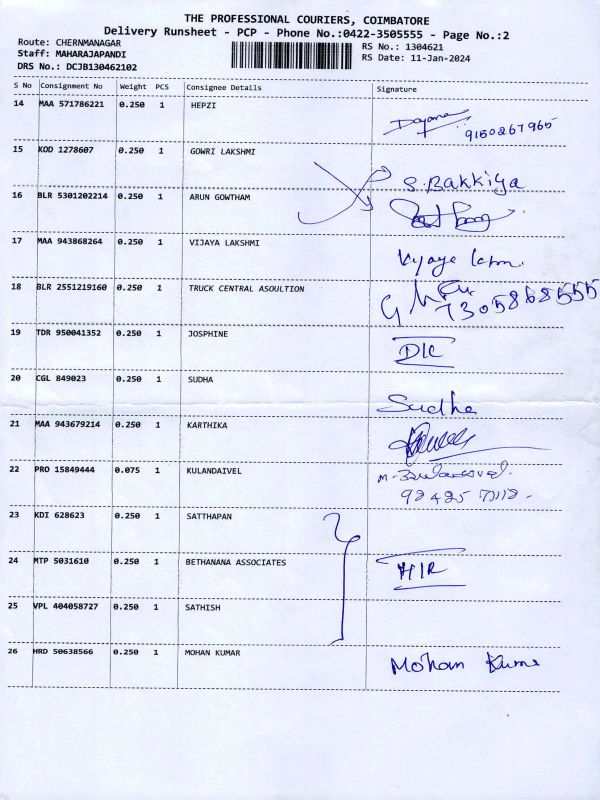 THE PROFESSIONAL COURIERS, COIMBATORE
Delivery Runsheet - PCP - Phone No.:0422-3505555 - Page No.:2
Route: CHERNMANAGAR
Staff: MAHARAJAPANDI
DRS No.: DCJB130462102
RS No.: 1304621
RS Date: 11-Jan-2024
S No Consignment No Weight PCS Consignee Details Signature
14 MAA 571786221 0.250 1 HEPZI
9150267965
15 KOD 1278607 0.250 1 GOWRI LAKSHMI
S. Bakkiya
16 BLR 5301202214 0.250 1 ARUN GOWTHAM
17 MAA 943868264 0.250 1 VIJAYA LAKSHMI
18 BLR 2551219160 0.250 1 TRUCK CENTRAL ASOULTION
7305868555
19 TDR 950041352 0.250 1 JOSPHINE
20 CGL 849023 0.250 1 SUDHA
Sudha
21 MAA 943679214 0.250 1 KARTHIKA
22 PRO 15849444 0.075 1 KULANDAIVEL
23 KDI 628623 0.250 1 SATTHAPAN
24 MTP 5031610 0.250 1 BETHANANA ASSOCIATES
25 VPL 404058727 0.250 1 SATHISH
26 HRD 50638566 0.250 1 MOHAN KUMAR
Mohan Kumar